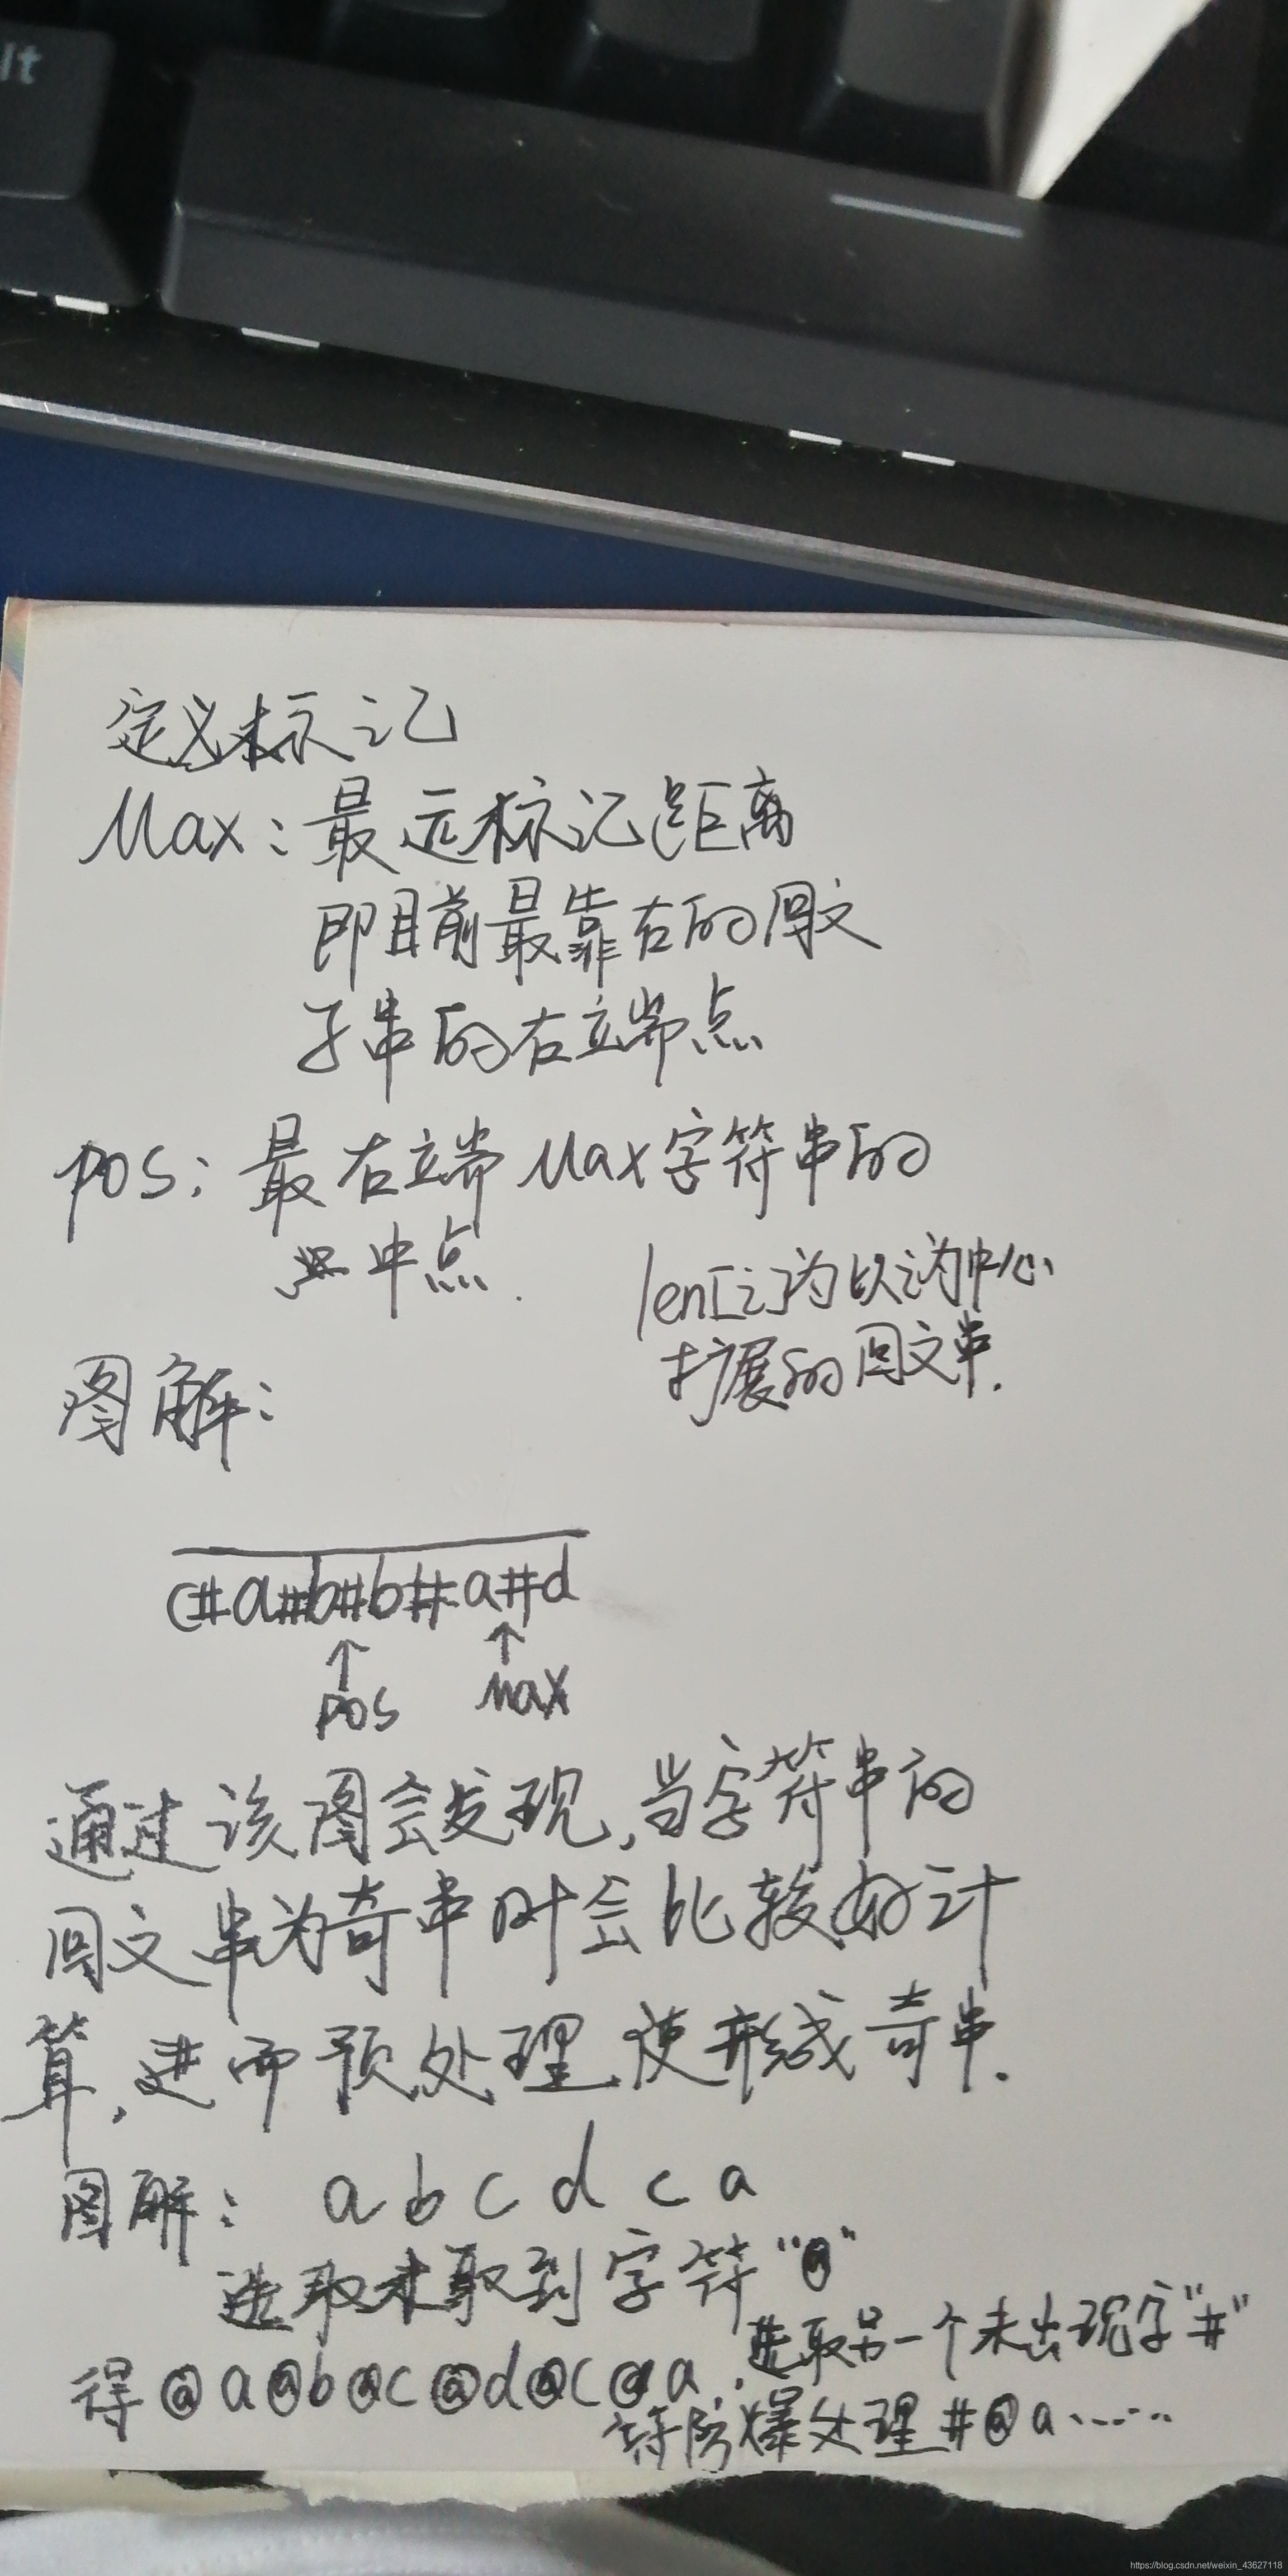 lt
定义标记
Max：最远标记距离
即目前最靠右的回文
子串的右端点
pos：最右端Max字符串的
中点.
len[i]为以i为中心
扩展的回文串.
图解：
c#a#b#b#a#d
↑ ↑
pos max
通过该图会发现,当字符串的
回文串为奇串时会比较好计
算,进而预处理,使形成奇串.
图解： a b c d c a
选取未取到字符"@"
得@a@b@c@d@c@a.
选取另一个未出现字"#"
符防爆处理#@a......
https://blog.csdn.net/weixin_43627118